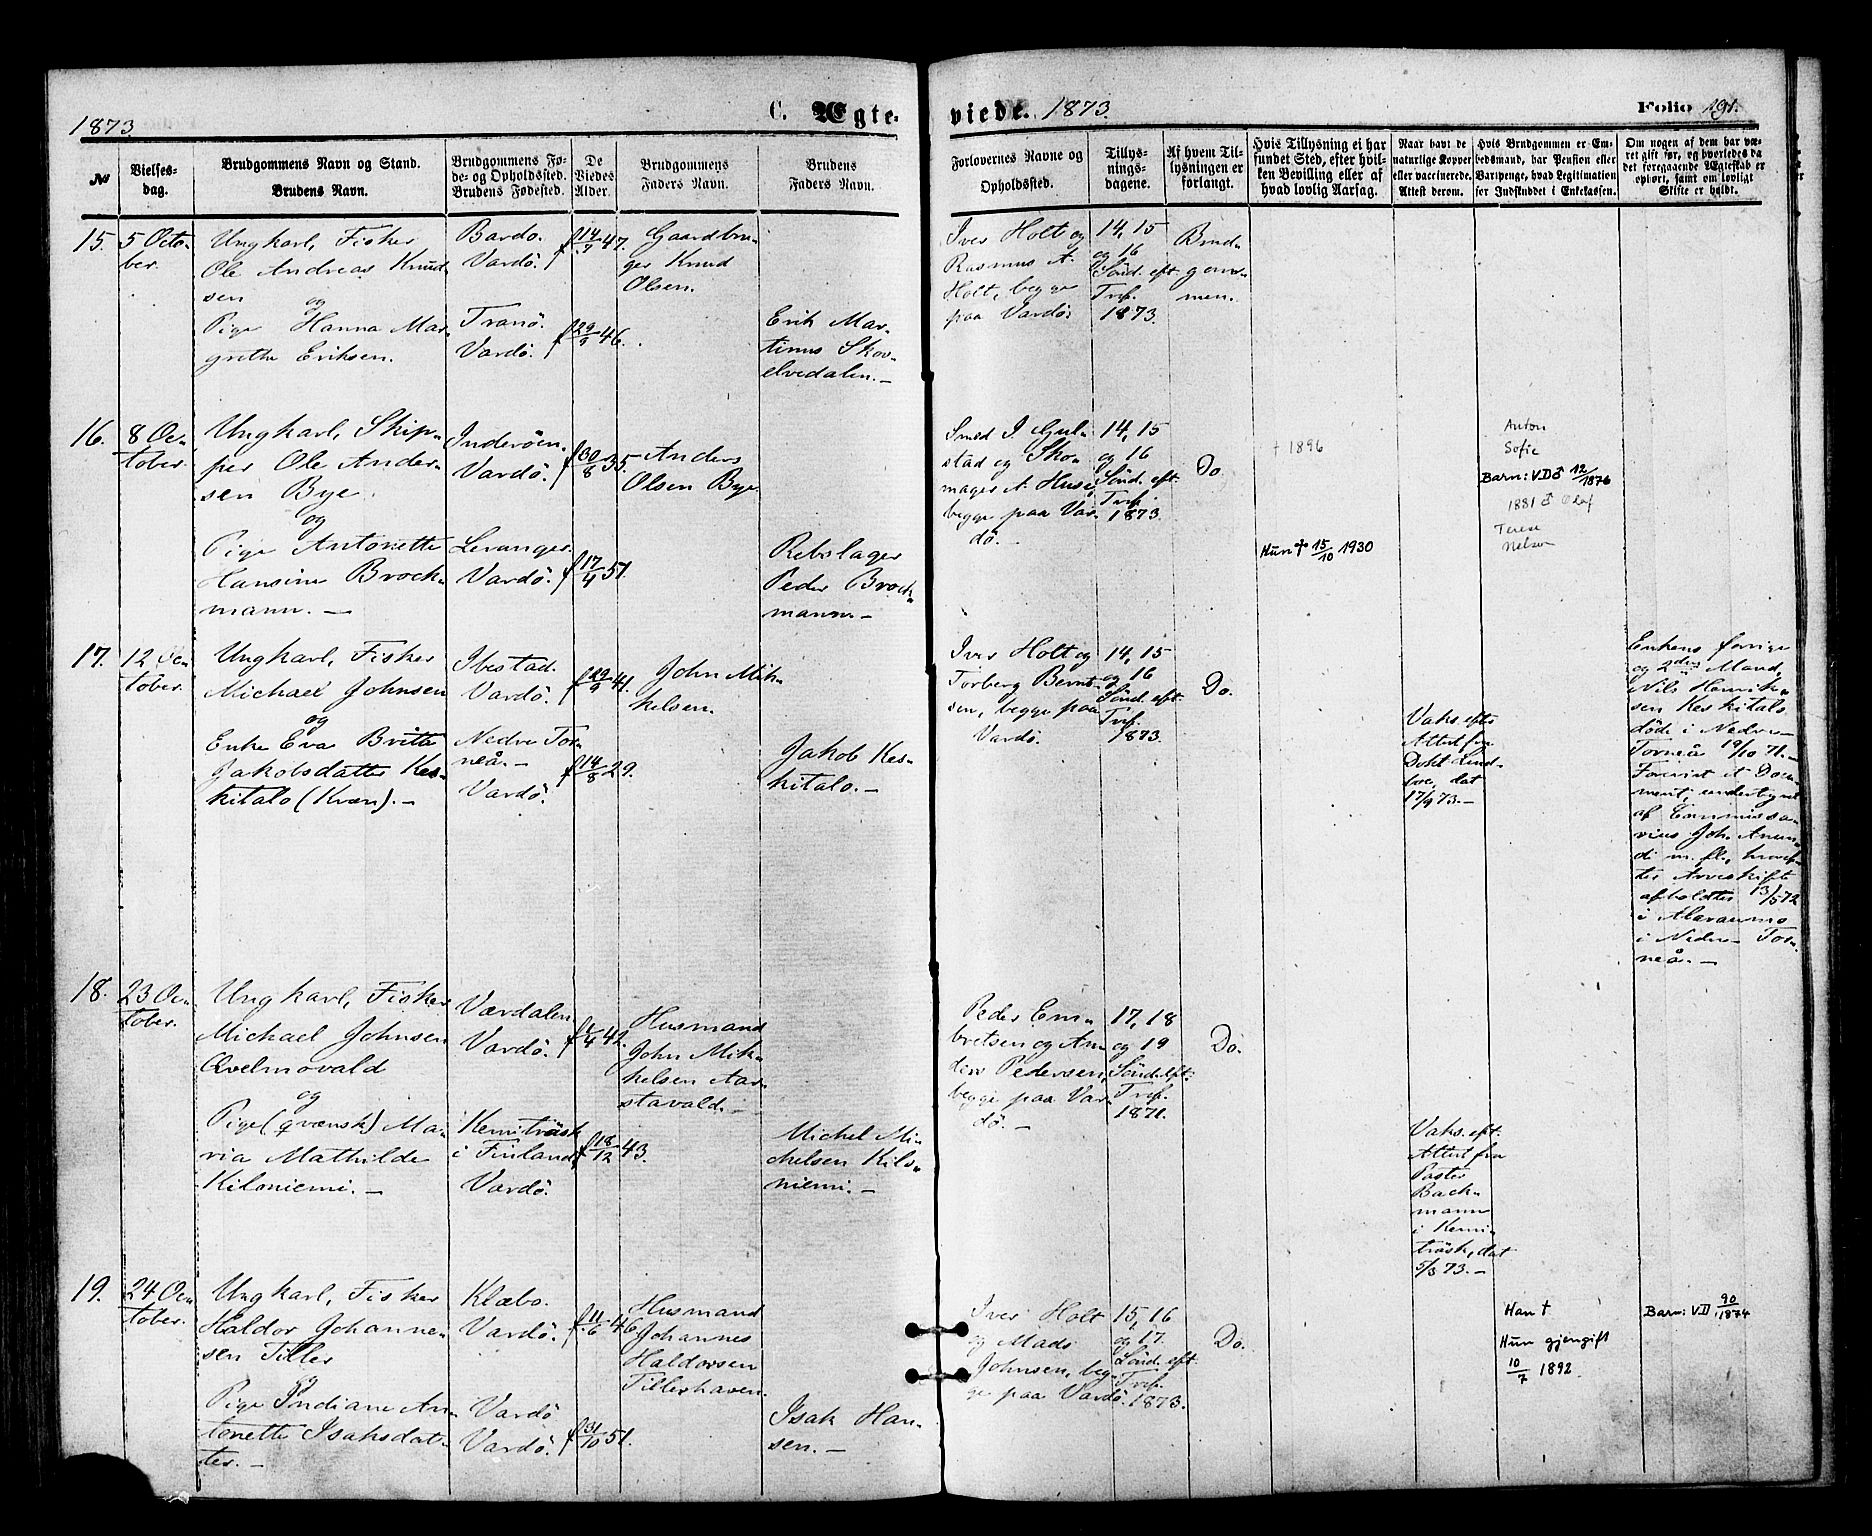 1873
C. Ægte-
viede. 1873.
Folio 191.
No
Vielses-
dag.
Brudgommens Navn og Stand.
Brudens Navn.
Brudgommens Fø-
de- og Opholdsted.
Brudens Fødested.
De
Viedes
Alder.
Brudgommens
Faders Navn.
Brudens
Faders Navn.
Forlovernes Navne og
Opholdsted.
Tillys-
nings-
dagene.
Af hvem Til-
lysningen er
forlangt.
Hvis Tillysning ei har
fundet Sted, efter hvil-
ken Bevilling eller af
hvad lovlig Aarsag.
Naar havt de
naturlige Kopper
eller vaccinerede.
Attest derom.
Hvis Brudgommen er Em-
bedsmand, har Pension eller
Vartpenge, hvad Legitimation
for Indskudet i Enkekassen.
Om nogen af dem har væ-
ret gift før, og hvorledes da
det foregaaende Ægteskab er
ophørt, samt om lovligt
Skifte er holdt.
15.
5 Octo-
ber.
Ungkarl, Fisker
Ole Andreas Knud-
sen
og
Pige Hanna Mar-
grethe Eriksen.
Bardo.
Vardö.
Tranö.
Vardö.
f 14/7 47.
f 29/9 46.
Gaardbru-
ger Knud
Olsen.
Erik Mar-
tinus Skov-
elvedalen. -
Iver Holt og
Rasmus A.
Holt, begge
paa Vardö.
14, 15
og 16
Sönd. eft.
Tref.
1873.
Brud-
gom-
men.
16.
8 Oc-
tober.
Ungkarl, Skip-
per Ole Ander-
sen Bye.
og
Pige Antonette
Hansine Brock-
mann. -
Inderöen.
Vardö.
Levanger.
Vardö.
f 30/8 35.
f 17/4 51.
Anders
Olsen Bye.
Rebslager
Peder Brock-
mann -
Smed I. Gul-
stad og Sko-
mager A. Huse,
begge paa Var-
dö. -
14, 15
og 16
Sönd. eft.
Tref.
1873.
Do.
† 1896
Hun † 15/10 1930
Anton
Sofie
Barn: VD ♂ 12/1876
1881 ♂ Olaf
Terese
17.
12 Oc-
tober.
Ungkarl, Fisker
Michael Johnsen
og
Enke Eva Britta
Jakobsdatter Kes-
kitalo (Kvæn). -
Ibestad.
Vardö.
Nedre Tor-
neå. -
Vardö.
f 29/9 41.
f 14/8 29.
John Mik-
kelsen.
Jakob Kes-
kitalo. -
Iver Holt og
Torberg Bernt-
sen, begge paa
Vardö.
14, 15
og 16
Sönd. eft.
Tref.
1873.
Do.
Vaks. efter
Attest fra
Dokt. Lind-
boe, dat
17/9 73. -
Enkens forrige
og 2den Mand,
Nils Henrik-
sen Keskitalo
döde i Nedre
Torneå 19/10 71. -
Forevist et Docu-
ment, undertegnet
af Commissa-
rius Joh. Anun-
di m. fl., hvoref-
ter Arveskifte
afholdtes 13/5 72
i Alaraumo
i Nedre Tor-
neå. -
18.
23 Oc-
tober.
Ungkarl, Fisker
Michael Johnsen
Qvelmovald
og
Pige (qvænsk) Ma-
ria Mathilde
Kiloniemi. -
Værdalen
Vardö.
Kemiträsk
i Finland,
Vardö.
f 1/4 42.
f 18/12 43.
Husmand
John Mik-
kelsen Aar-
stavald. -
Michel Mi-
chelsen Kilo-
niemi. -
Peder Em-
bretsen og An-
ders Pedersen,
begge paa Var-
dö. -
17, 18
og 19
Sönd. eft.
Tref.
1871.
Do.
Vaks. eft.
Attest fra
Pastor
Back-
mann
i Kemi-
träsk, dat
5/3 73. -
19.
24 Oc-
tober.
Ungkarl, Fisker
Haldor Johanne-
sen Tiller
og
Pige Indiane An-
tonette Isaksdat-
ter. -
Klæbo.
Vardö.
Vardö
Vardö.
f 11/6 46.
f 31/10 51.
Husmand
Johannes
Haldorsen
Tillerhaven.
Isak Han-
sen. -
Iver Holt
og Mads
Johnsen, beg-
ge paa Vardö.
15, 16
og 17.
Sönd. eft.
Tref.
1873.
Do.
Han †
Hun gjengift
10/7 1892
Barn: VD 90/1874